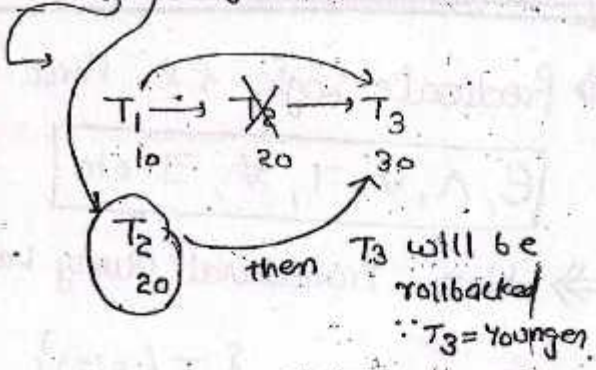 T1 → T2 → T3
10 20 30
T2
20
then
T3 will be
rollbacked
∵ T3 = Younger